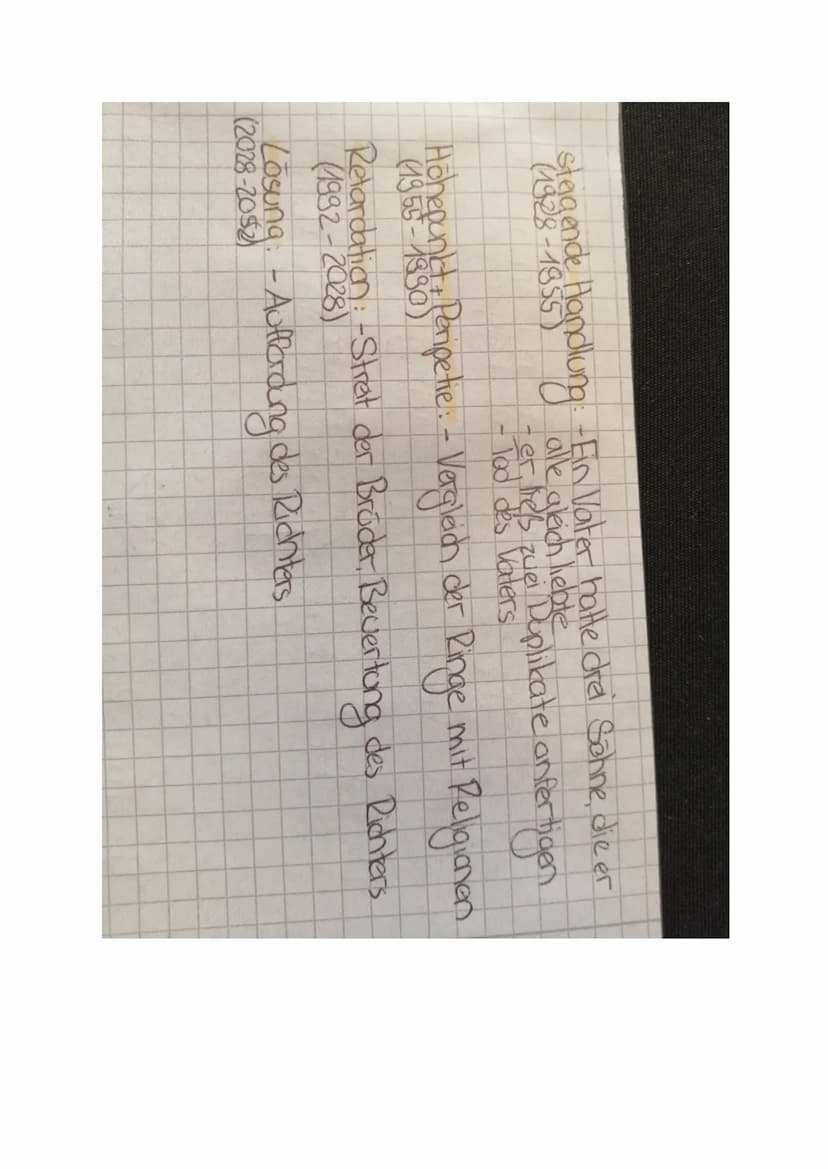 steigende Handlung: - Ein Vater hatte drei Söhne, die er
(1928-1955) alle gleich liebte
- er ließ zwei Duplikate anfertigen
- Tod des Vaters
Höhepunkt + Peripetie: - Vergleich der Ringe mit Religionen
(1955-1990)
Retardation: - Streit der Brüder, Bewertung des Richters
(1992-2028)
Lösung: - Aufforderung des Richters
(2028-2052)